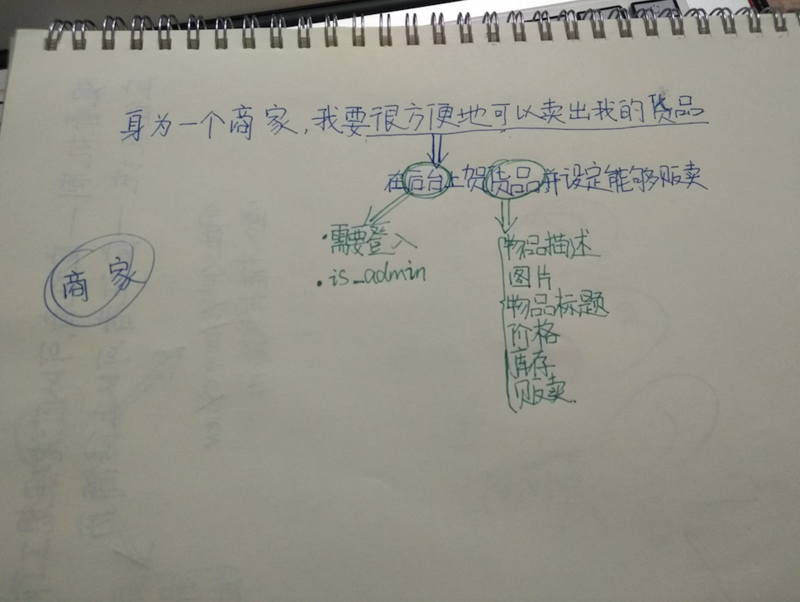 身为一个商家，我要很方便地可以卖出我的货品
在后台上架货品并设定能够贩卖
·需要登入
·is_admin
商家
物品描述
图片
物品标题
价格
库存
贩卖